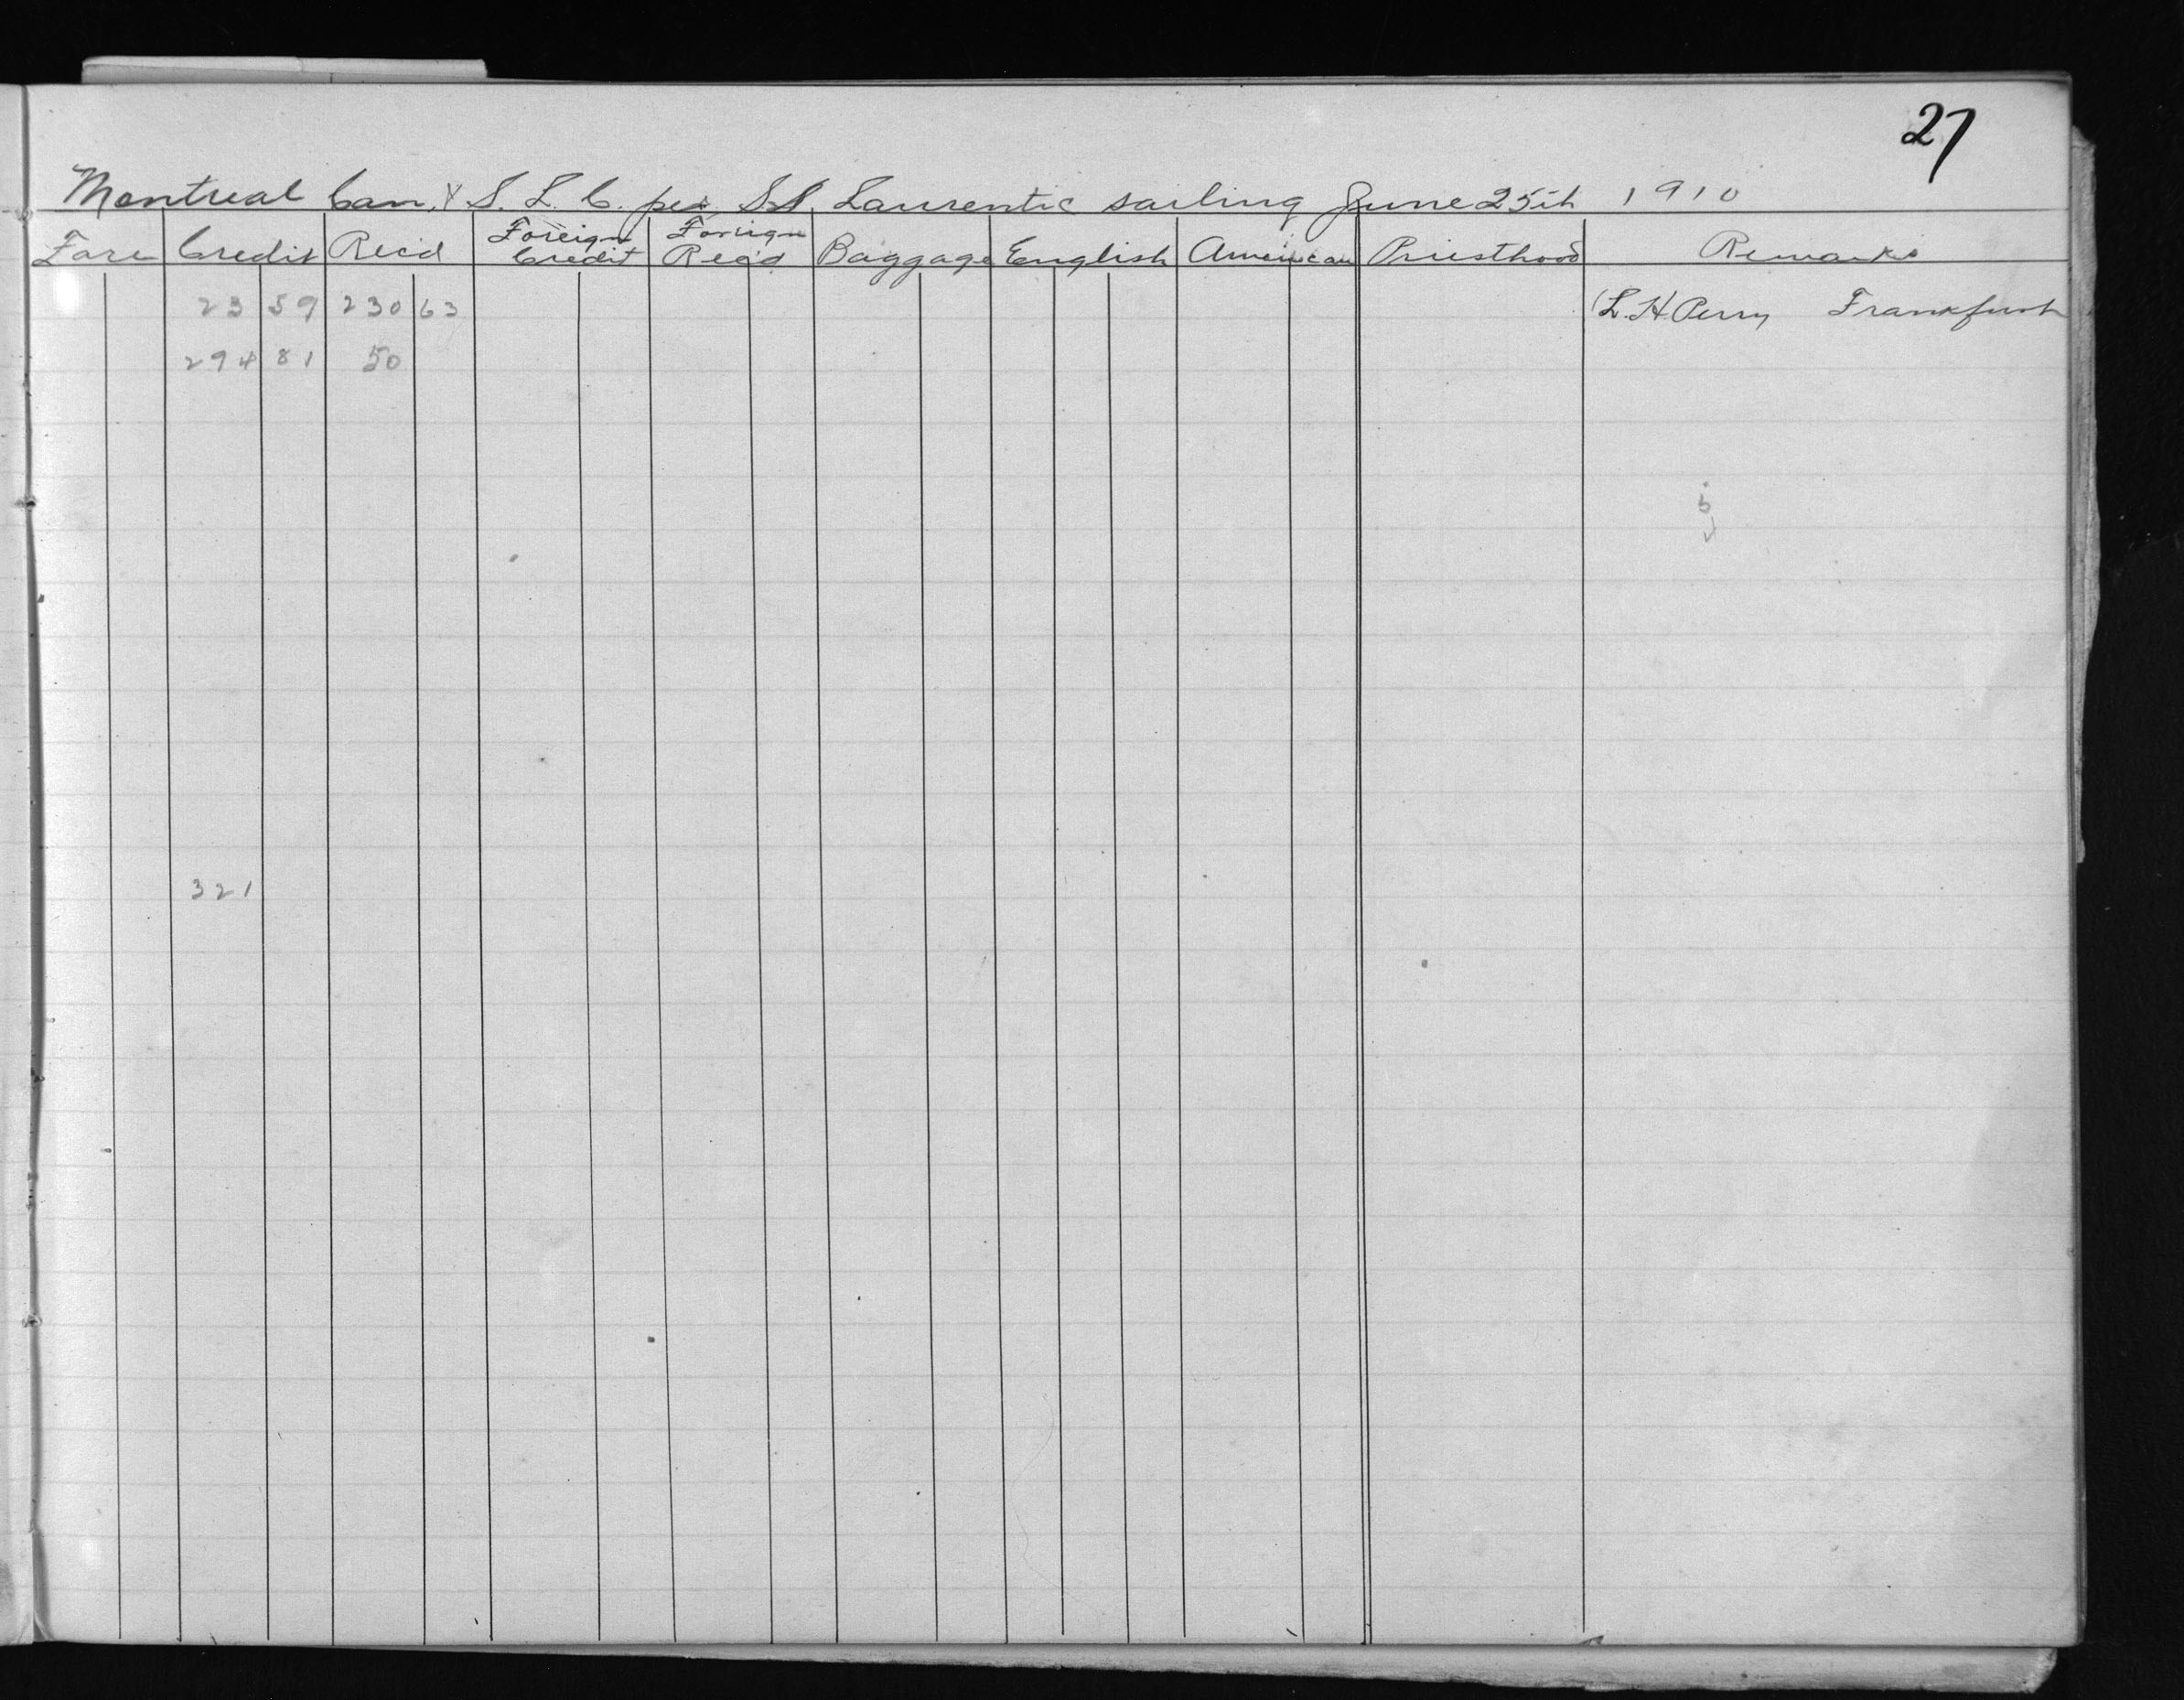 27
Montreal Can. & S. L. C. per S.S. Laurentic sailing June 25th 1910
Fare Credit Rec'd Foreign Credit Foreign Rec'd Baggage English American Priesthood Remarks
23 59 230 63 (L. H. Perry Frankfurt
294 81 50
321